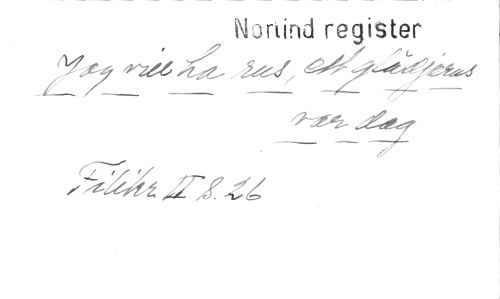 Norlind register
Jag vill ha rus, ett glädjerus
var dag
Filikr. II s. 26